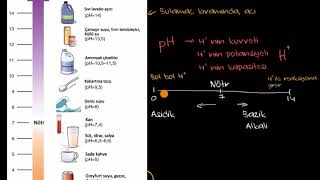 Sıvı lavabo açıcı
(pH=14)
14
13
12
(pH=13,5)
11
Amonyak çözeltisi
(pH=10,5-11,5)
10
9
Kabartma tozu
(pH=9,5)
8
Deniz suyu
(pH=8)
Nötr
7
Kan
(pH=7,4)
6
Süt, idrar, salya
(pH=6,3-6,6)
5
Sade kahve
(pH=5)
4
Greyfurt suyu, gazoz,
← Sulamak kıvamında acı
pH
H⁺ nın kuvveti
H⁺ nın potansiyeli
H⁺ nın kapasitesi
H⁺
Bol bol H⁺
Nötr
H⁺ ile reaksiyona
girer
1
0
7
14
Asidik
← →
Bazik
Alkali